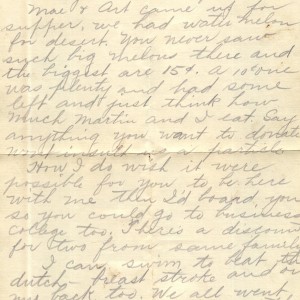 Mae & Art came up for
supper, we had watermelon
for desert. You never saw
such big melons there and
the biggest are 15¢. A 10¢ one
was plenty and had some
left and just think how
much Martin and I eat. Say
anything you want to donate
won't insult us a particle.
How I do wish it were
possible for you to be here
with me then I'd board, you
so you could go to business
college too. There's a discount
for two from same family
I can swim to beat the
dutch - breast stroke and on
my back too. We all went